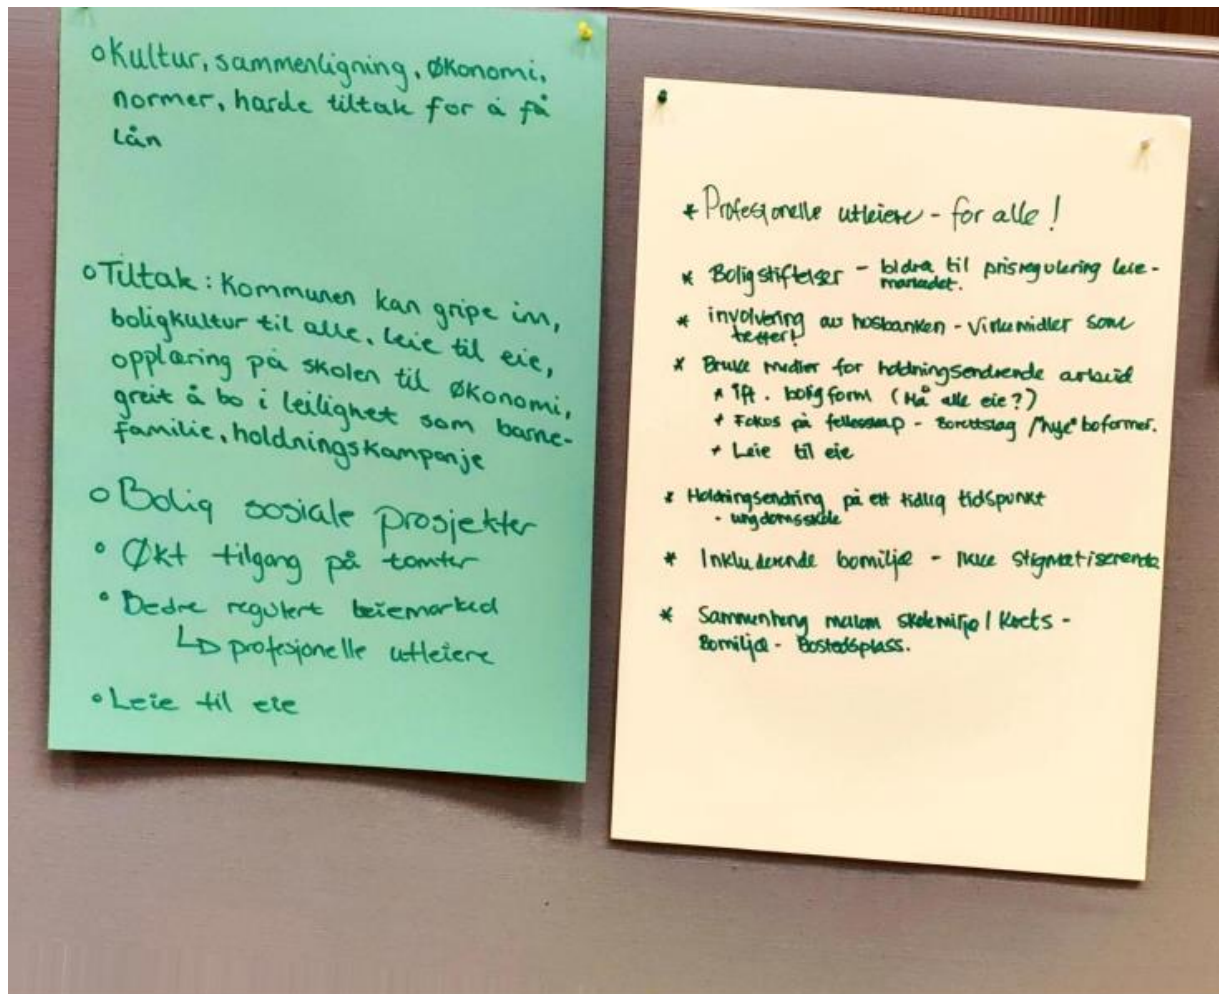 o Kultur, sammenligning, økonomi,
normer, harde tiltak for å få
lån
o Tiltak: Kommunen kan gripe inn,
boligkultur til alle, leie til eie,
opplæring på skolen til økonomi,
greit å bo i leilighet som barne-
familie, holdningskampanje
o Bolig sosiale prosjekter
• Økt tilgang på tomter
• Bedre regulert leiemarked
↳ profesjonelle utleiere
• Leie til eie
* Profesjonelle utleiere - for alle!
* Boligstiftelser - bidra til prisregulering leie-
markedet.
* involvering av husbanken - Virkemidler som
treffer!
* Bruke medier for holdningsendrende arbeid
* ift. boligform (Må alle eie?)
+ Fokus på fellesskap - Borettslag / "nye" boformer.
+ Leie til eie
* Holdningsendring på ett tidlig tidspunkt
- ungdomsskole
* Inkluderende bomiljø - Ikke stigmatiserende
* Sammenheng mellom skolemiljø / Krets -
Bomiljø - Bostedsplass.